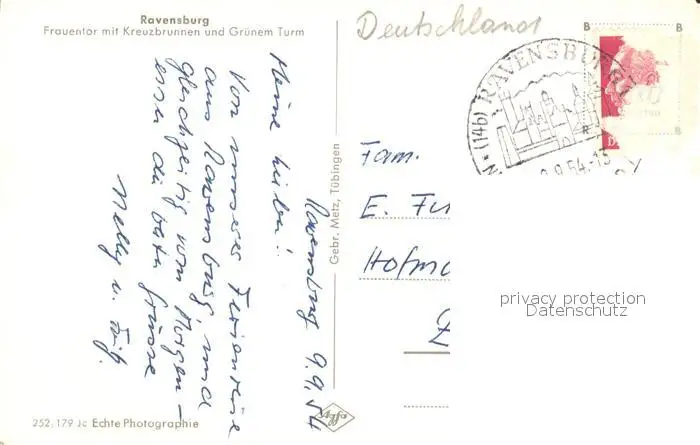 Ravensburg
Frauentor mit Kreuzbrunnen und Grünem Turm
Deutschland
Ravensburg 9.9.54
Meine Lieben!
Von unserer Ferienreise
aus Ravensburg, und
gleichzeitig vom Morgen-
essen die besten Grüsse
Nelly u.
Gebr. Metz, Tübingen
252.179 Jc Echte Photographie
Fam.
E. Fu
Hofm
(14b) RAVENSBURG
9.9.54.-15
privacy protection
Datenschutz
B
B
R